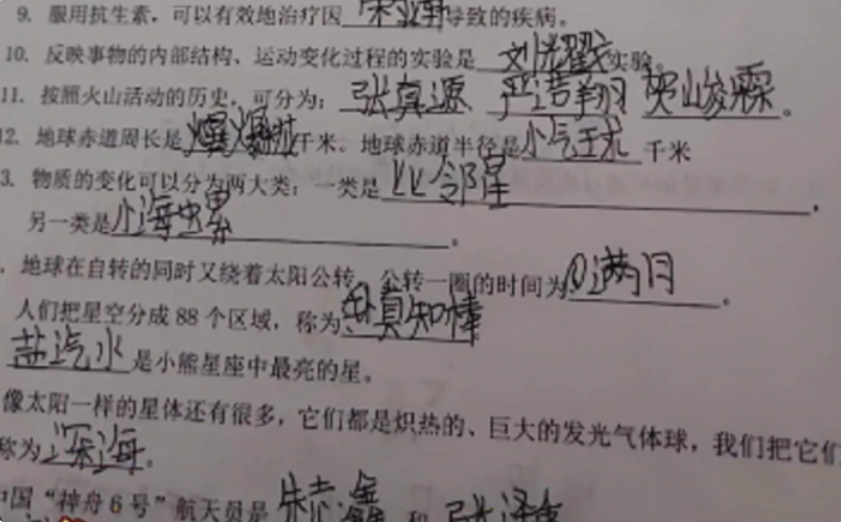 9. 服用抗生素，可以有效地治疗因宋亚轩导致的疾病。
10. 反映事物的内部结构、运动变化过程的实验是刘耀文实验。
11. 按照火山活动的历史，可分为：张真源 严浩翔 贺峻霖。
12. 地球赤道周长是千米。地球赤道半径是千米
3. 物质的变化可以分为两大类：一类是比邻星，
另一类是小海螺。
. 地球在自转的同时又绕着太阳公转，公转一圈的时间为满月。
人们把星空分成88个区域，称为真知棒
盐汽水是小熊星座中最亮的星。
像太阳一样的星体还有很多，它们都是炽热的、巨大的发光气体球，我们把它们
称为深海。
中国“神舟6号”航天员是朱志鑫和张泽禹